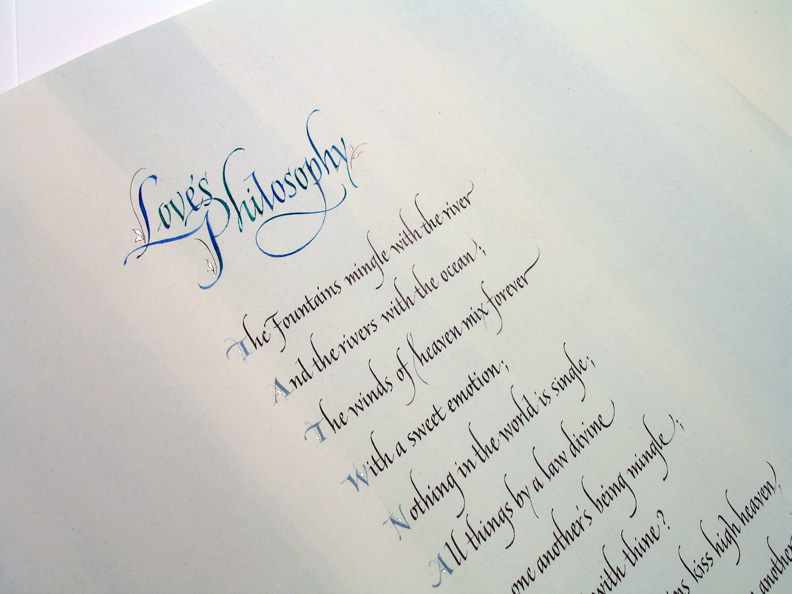 Love's
Philosophy
The Fountains mingle with the river
And the rivers with the ocean;
The winds of heaven mix forever
With a sweet emotion;
Nothing in the world is single;
All things by a law divine
one another's being mingle;
with thine?
kiss high heaven,
another